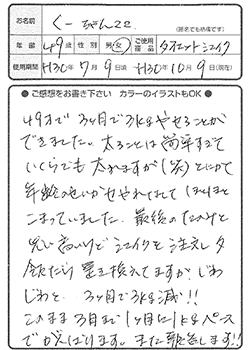 お名前
くーちゃん22
(匿名でも結構です)
年齢 49才 性別 男・女 ご使用商品 ダイエットシェイク
使用期間 H30年 7月 9日頃 ~ H30年 10月 9日(現在)
●ご感想をお書き下さい カラーのイラストもOK●
49才で 3ヶ月で3kgやせることが
できました。太ることは簡単すぎて
いくらでも太れますが(笑)とにかく
年齢のせいかやせれなくて ほんとに
こまっていました。最後のたのみと
思い 高いけどシェイクを注文し 夕
食だけ 置き換えてますが、じわ
じわと、 3ヶ月で3kg減!!
このまま 3月まで 1ヶ月に1kgペース
で がんばります。また報告します!!